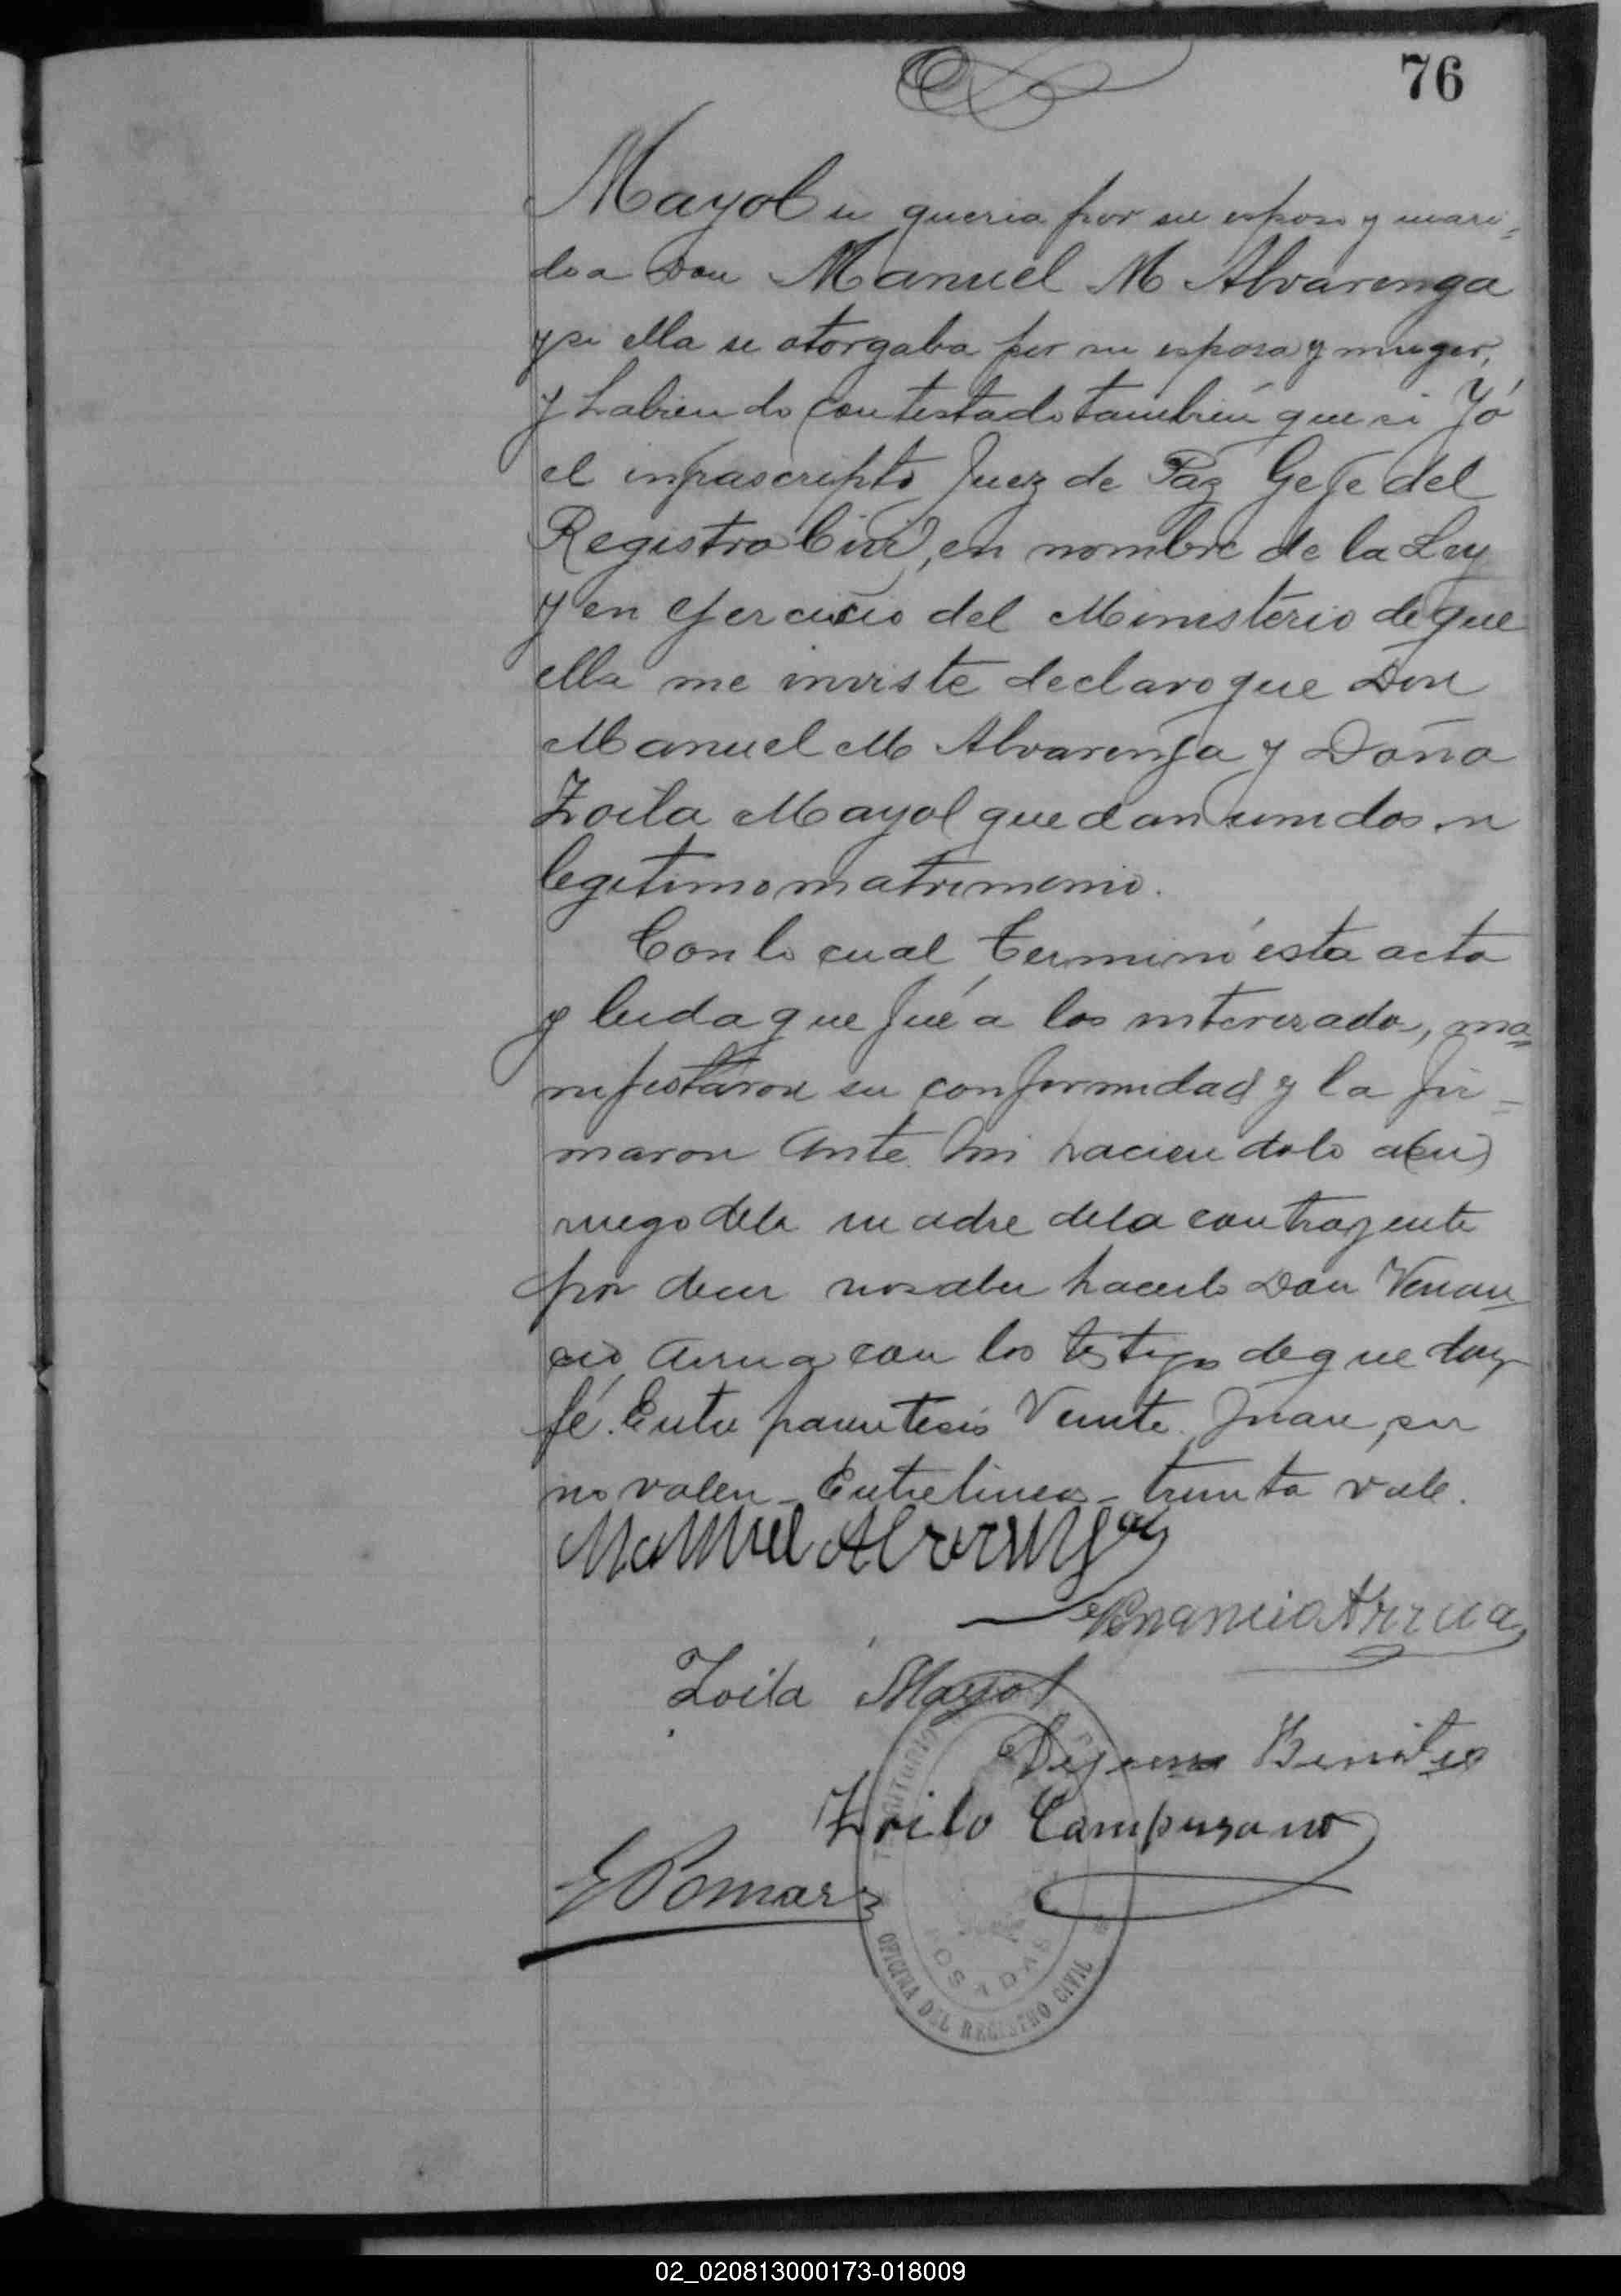 76
Mayol si queria por su esposo y mari=
do a Don Manuel M Alvarenga
y si ella se otorgaba por su esposa y muger,
y habiendo contestado también que si Yó
el infrascripto Juez de Paz Gefe del
Registro Civil, en nombre de la Ley
y en ejercicio del Ministerio de que
ella me inviste declaro que Don
Manuel M Alvarenga y Doña
Zoila Mayol quedan unidos en
legitimo matrimonio.
Con lo cual terminó esta acta
y leida que fué a los interezados, ma=
nifestaron su conformidad y la fir=
maron ante mi haciendolo a (su)
ruego dela madre dela contrayente
por decir no saber hacerlo Don Venan
cio Arrua con los testigos de que doy
fé. Entre parentesis Veinte. Juan, su
no valen - Entrelineas - treinta vale.
Manuel Alvarenga
Venancio Arrua
Zoila Mayol
Benites
Zoilo Campuzano
E Pomar
POSADAS
OFICINA DEL REGISTRO CIVIL
02_020813000173-018009